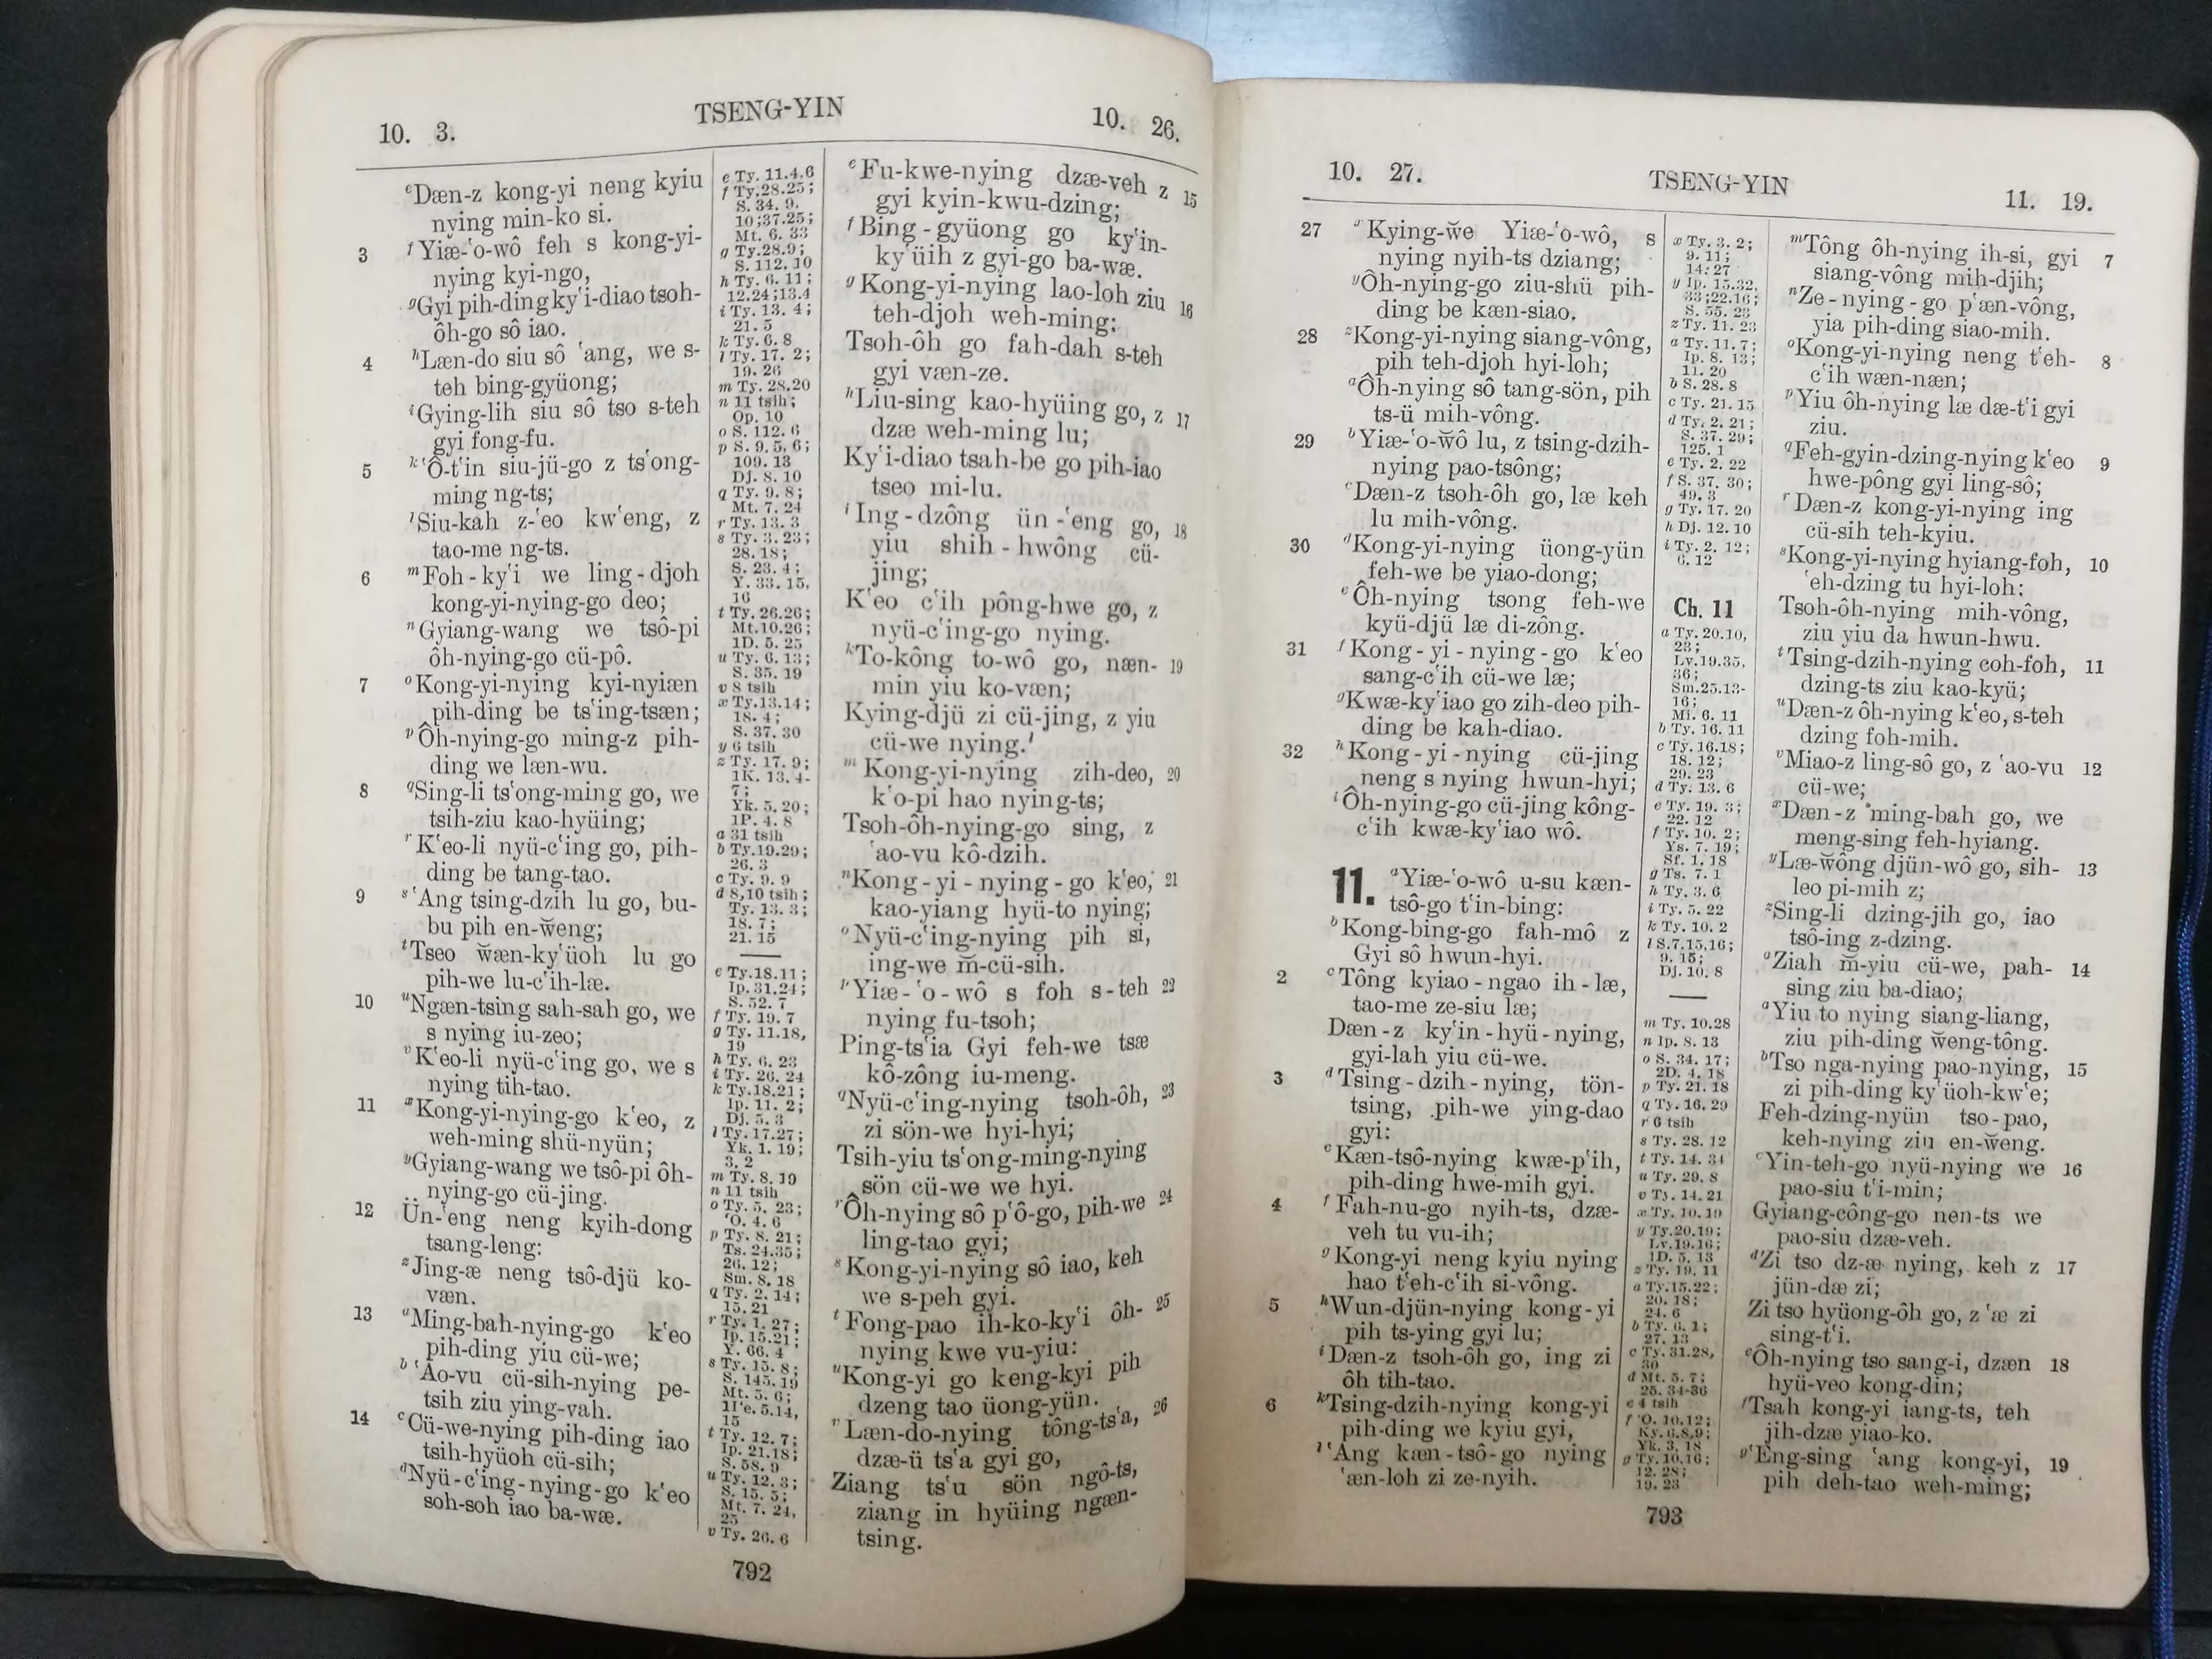 10. 3.
TSENG-YIN
10. 26.
ᵉDæn-z kong-yi neng kyiu
nying min-ko si.
3 ᶠYiæ-ʻo-wô feh s kong-yi-
nying kyi-ngo,
ᵍGyi pih-ding kyʻi-diao tsoh-
ôh-go sô iao.
4 ʰLæn-do siu sô ʻang, we s-
teh bing-gyüong;
ⁱGying-lih siu sô tso s-teh
gyi fong-fu.
5 ᵏʻÔ-tʻin siu-jü-go z tsʻong-
ming ng-ts;
ˡSiu-kah z-ʻeo kwʻeng, z
tao-me ng-ts.
6 ᵐFoh-kyʻi we ling-djoh
kong-yi-nying-go deo;
ⁿGyiang-wang we tsô-pi
ôh-nying-go cü-pô.
7 ᵒKong-yi-nying kyi-nyiæn
pih-ding be tsʻing-tsæn;
ᵖÔh-nying-go ming-z pih-
ding we læn-wu.
8 ᑫSing-li tsʻong-ming go, we
tsih-ziu kao-hyüing;
ʳKʻeo-li nyü-cʻing go, pih-
ding be tang-tao.
9 ˢʻAng tsing-dzih lu go, bu-
bu pih en-w̆eng;
ᵗTseo w̆æn-kyʻüoh lu go
pih-we lu-cʻih-læ.
10 ᵘNgæn-tsing sah-sah go, we
s nying iu-zeo;
ᵛKʻeo-li nyü-cʻing go, we s
nying tih-tao.
11 ˣKong-yi-nying-go kʻeo, z
weh-ming shü-nyün;
ʸGyiang-wang we tsô-pi ôh-
nying-go cü-jing.
12 Ün-ʻeng neng kyih-dong
tsang-leng:
ᶻJing-æ neng tsô-djü ko-
væn.
13 ᵃMing-bah-nying-go kʻeo
pih-ding yiu cü-we;
ᵇʻAo-vu cü-sih-nying pe-
tsih ziu ying-vah.
14 ᶜCü-we-nying pih-ding iao
tsih-hyüoh cü-sih;
ᵈNyü-cʻing-nying-go kʻeo
soh-soh iao ba-wæ.
e Ty. 11.4,6
f Ty.28.25;
S. 34. 9.
10;37.25;
Mt. 6. 33
g Ty.28.9;
S. 112. 10
h Ty. 6. 11;
12.24;13.4
i Ty. 13. 4;
21. 5
k Ty. 6. 8
l Ty. 17. 2;
19. 26
m Ty. 28.20
n 11 tsih;
Op. 10
o S. 112. 6
p S. 9. 5, 6;
109. 13
Dj. 8. 10
q Ty. 9. 8;
Mt. 7. 24
r Ty. 13. 3
s Ty. 3. 23;
28. 18;
S. 23. 4;
Y. 33. 15,
16
t Ty. 26.26;
Mt.10.26;
1D. 5. 25
u Ty. 6. 13;
S. 35. 19
v 8 tsih
x Ty.13.14;
18. 4;
S. 37. 30
y 6 tsih
z Ty. 17. 9;
1K. 13. 4-
7;
Yk. 5. 20;
1P. 4. 8
a 31 tsih
b Ty.19.29;
26. 3
c Ty. 9. 9
d 8,10 tsih;
Ty. 13. 3;
18. 7;
21. 15
e Ty.18.11;
Ip. 31.24;
S. 52. 7
f Ty. 19. 7
g Ty. 11.18,
19
h Ty. 6. 23
i Ty. 26. 24
k Ty.18.21;
Ip. 11. 2;
Dj. 5. 3
l Ty. 17.27;
Yk. 1. 19;
3. 2
m Ty. 8. 19
n 11 tsih
o Ty. 5. 23;
ʻO. 4. 6
p Ty. 8. 21;
Ts. 24.35;
26. 12;
Sm. 8. 18
q Ty. 2. 14;
15. 21
r Ty. 1. 27;
Ip. 15.21;
Y. 66. 4
s Ty. 15. 8;
S. 145. 19
Mt. 5. 6;
5.14,
15
t Ty. 12. 7;
Ip. 21.18;
S. 58. 9
u Ty. 12. 3;
S. 15. 5;
Mt. 7. 24,
25
v Ty. 26. 6
ᵉFu-kwe-nying dzæ-veh z 15
gyi kyin-kwu-dzing;
ᶠBing-gyüong go kyʻin-
kyʻüih z gyi-go ba-wæ.
ᵍKong-yi-nying lao-loh ziu 16
teh-djoh weh-ming;
Tsoh-ôh go fah-dah s-teh
gyi væn-ze.
ʰLiu-sing kao-hyüing go, z 17
dzæ weh-ming lu;
Kyʻi-diao tsah-be go pih-iao
tseo mi-lu.
ⁱIng-dzông ün-ʻeng go, 18
yiu shih-hwông cü-
jing;
Kʻeo cʻih pông-hwe go, z
nyü-cʻing-go nying.
ᵏTo-kông to-wô go, næn- 19
min yiu ko-væn;
Kying-djü zi cü-jing, z yiu
cü-we nying.ˡ
ᵐKong-yi-nying zih-deo, 20
kʻo-pi hao nying-ts;
Tsoh-ôh-nying-go sing, z
ʻao-vu kô-dzih.
ⁿKong-yi-nying-go kʻeo, 21
kao-yiang hyü-to nying;
ᵒNyü-cʻing-nying pih si,
ing-we m̆-cü-sih.
ᵖYiæ-ʻo-wô s foh s-teh 22
nying fu-tsoh;
Ping-tsʻia Gyi feh-we tsæ
kô-zông iu-meng.
ᑫNyü-cʻing-nying tsoh-ôh, 23
zi sön-we hyi-hyi;
Tsih-yiu tsʻong-ming-nying
sön cü-we we hyi.
ʳÔh-nying sô pʻô-go, pih-we 24
ling-tao gyi;
ˢKong-yi-nying sô iao, keh
we s-peh gyi.
ᵗFong-pao ih-ko-kyʻi ôh- 25
nying kwe vu-yiu:
ᵘKong-yi go keng-kyi pih
dzeng tao üong-yün.
ᵛLæn-do-nying tông-tsʻa, 26
dzæ-ü tsʻa gyi go,
Ziang tsʻu sön ngô-ts,
ziang in hyüing ngæn-
tsing.
792
10. 27.
TSENG-YIN
11. 19.
27 ˣKying-w̆e Yiæ-ʻo-wô, s
nying nyih-ts dziang;
ʸÔh-nying-go ziu-shü pih-
ding be kæn-siao.
28 ᶻKong-yi-nying siang-vông,
pih teh-djoh hyi-loh;
ᵃÔh-nying sô tang-sön, pih
ts-ü mih-vông.
29 ᵇYiæ-ʻo-w̆ô lu, z tsing-dzih-
nying pao-tsông;
ᶜDæn-z tsoh-ôh go, læ keh
lu mih-vông.
30 ᵈKong-yi-nying üong-yün
feh-we be yiao-dong;
ᵉÔh-nying tsong feh-we
kyü-djü læ di-zông.
31 ᶠKong-yi-nying-go kʻeo
sang-cʻih cü-we læ;
ᵍKwæ-kyʻiao go zih-deo pih-
ding be kah-diao.
32 ʰKong-yi-nying cü-jing
neng s nying hwun-hyi;
ⁱÔh-nying-go cü-jing kông-
cʻih kwæ-kyʻiao wô.
11. ᵃYiæ-ʻo-wô u-su kæn-
tsô-go tʻin-bing:
ᵇKong-bing-go fah-mô z
Gyi sô hwun-hyi.
2 ᶜTông kyiao-ngao ih-læ,
tao-me ze-siu læ;
Dæn-z kyʻin-hyü-nying,
gyi-lah yiu cü-we.
3 ᵈTsing-dzih-nying, tön-
tsing, pih-we ying-dao
gyi:
ᵉKæn-tsô-nying kwæ-pʻih,
pih-ding hwe-mih gyi.
4 ᶠFah-nu-go nyih-ts, dzæ-
veh tu vu-ih;
ᵍKong-yi neng kyiu nying
hao tʻeh-cʻih si-vông.
5 ʰWun-djün-nying kong-yi
pih ts-ying gyi lu;
ⁱDæn-z tsoh-ôh go, ing zi
ôh tih-tao.
6 ᵏTsing-dzih-nying kong-yi
pih-ding we kyiu gyi,
ˡʻAng kæn-tsô-go nying
ʻæn-loh zi ze-nyih.
x Ty. 3. 2;
9. 11;
14. 27
y Ip. 15.32,
33;22.16;
S. 55. 23
z Ty. 11. 23
a Ty. 11. 7;
Ip. 8. 13;
11. 20
b S. 28. 8
c Ty. 21. 15
d Ty. 2. 21;
S. 37. 29;
125. 1
e Ty. 2. 22
f S. 37. 30;
49. 3
g Ty. 17. 20
h Dj. 12. 10
i Ty. 2. 12;
6. 12
Ch. 11
a Ty. 20.10,
23;
Lv.19.35,
36;
Sm.25.13-
16;
Mi. 6. 11
b Ty. 16. 11
c Ty.16.18;
18. 12;
29. 23
d Ty. 13. 6
e Ty. 19. 3;
22. 12
f Ty. 10. 2;
Ys. 7. 19;
Sf. 1. 18
g Ts. 7. 1
h Ty. 3. 6
i Ty. 5. 22
k Ty. 10. 2
l S.7.15,16;
9. 15;
Dj. 10. 8
m Ty. 10.28
n Ip. 8. 13
o S. 34. 17;
2D. 4. 18
p Ty. 21. 18
q Ty. 16. 29
r 6 tsih
s Ty. 28. 12
t Ty. 14. 34
u Ty. 29. 8
v Ty. 14. 21
x Ty. 10. 19
y Ty.20.19;
Lv.19.16;
1D. 5. 13
z Ty. 19. 11
a Ty.15.22;
20. 18;
24. 6
b Ty. 6. 1;
27. 13
c Ty. 31.28,
30
d Mt. 5. 7;
25. 34-36
e 4 tsih
f ʻO. 10.12;
Ky. 6.8,9;
Yk. 3. 18
g Ty. 10.16;
12. 28;
19. 23
ᵐTông ôh-nying ih-si, gyi 7
siang-vông mih-djih;
ⁿZe-nying-go pʻæn-vông,
yia pih-ding siao-mih.
ᵒKong-yi-nying neng tʻeh- 8
cʻih wæn-næn;
ᵖYiu ôh-nying læ dæ-tʻi gyi
ziu.
ᑫFeh-gyin-dzing-nying kʻeo 9
hwe-pông gyi ling-sô;
ʳDæn-z kong-yi-nying ing
cü-sih teh-kyiu.
ˢKong-yi-nying hyiang-foh, 10
ʻeh-dzing tu hyi-loh:
Tsoh-ôh-nying mih-vông,
ziu yiu da hwun-hwu.
ᵗTsing-dzih-nying coh-foh, 11
dzing-ts ziu kao-kyü;
ᵘDæn-z ôh-nying kʻeo, s-teh
dzing foh-mih.
ᵛMiao-z ling-sô go, z ʻao-vu 12
cü-we;
ˣDæn-z ming-bah go, we
meng-sing feh-hyiang.
ʸLæ-w̆ông djün-wô go, sih- 13
leo pi-mih z;
ᶻSing-li dzing-jih go, iao
tsô-ing z-dzing.
ᵃZiah m̆-yiu cü-we, pah- 14
sing ziu ba-diao;
ᵃYiu to nying siang-liang,
ziu pih-ding w̆eng-tông.
ᵇTso nga-nying pao-nying, 15
zi pih-ding kyʻüoh-kwʻe;
Feh-dzing-nyün tso-pao,
keh-nying ziu en-w̆eng.
ᶜYin-teh-go nyü-nying we 16
pao-siu tʻi-min;
Gyiang-công-go nen-ts we
pao-siu dzæ-veh.
ᵈZi tso dz-æ nying, keh z 17
jün-dæ zi;
Zi tso hyüong-ôh go, z ʻæ zi
sing-tʻi.
ᵉÔh-nying tso sang-i, dzæn 18
hyü-veo kong-din;
ᶠTsah kong-yi iang-ts, teh
jih-dzæ yiao-ko.
ᵍʻEng-sing ʻang kong-yi, 19
pih deh-tao weh-ming;
793